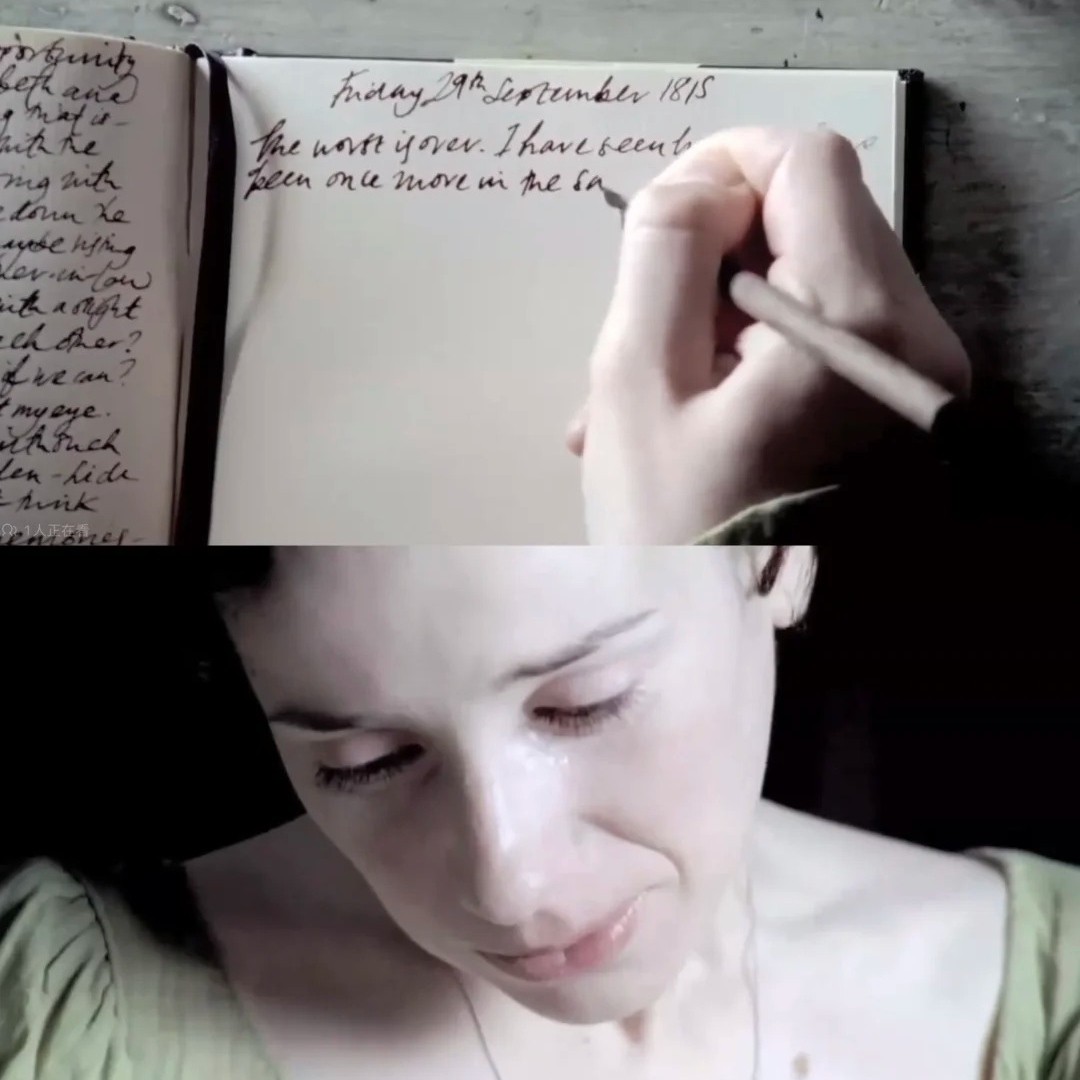 portunity
beth and
g that is -
with the
ring with
down the
maybe rising
her-in-law
with a slight
each other?
if we can?
t my eye.
den - hide
think
Friday 29th September 1815
The worst is over. I have seen h
been once more in the sa
1人正在看